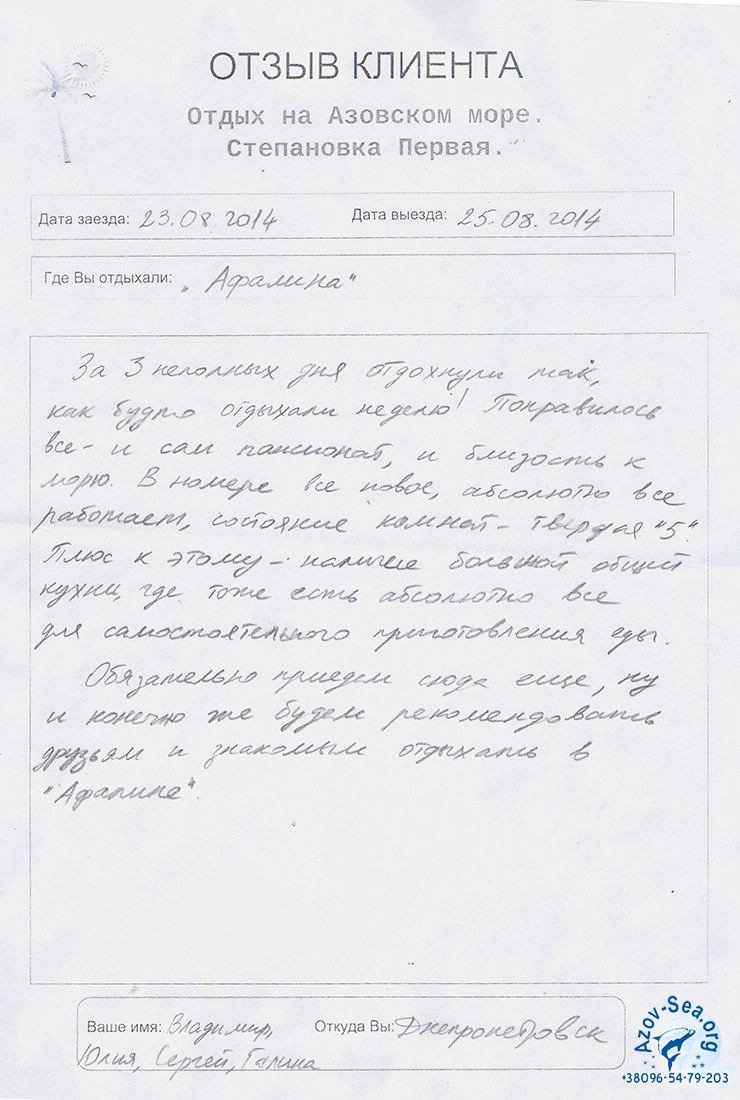 ОТЗЫВ КЛИЕНТА
Отдых на Азовском море.
Степановка Первая.
Дата заезда: 23.08.2014 Дата выезда: 25.08.2014
Где Вы отдыхали: „Афалина"
За 3 неполных дня отдохнули так,
как будто отдыхали неделю! Понравилось
все - и сам пансионат, и близость к
морю. В номере все новое, абсолютно все
работает, состояние комнат - твердая "5".
Плюс к этому - наличие большой общей
кухни, где тоже есть абсолютно все
для самостоятельного приготовления еды.
Обязательно приедем сюда еще, ну
и конечно же будем рекомендовать
друзьям и знакомым отдыхать в
"Афалине".
Ваше имя: Владимир, Откуда Вы: Днепропетровск
Юлия, Сергей, Галина
Azov-Sea.org
+38096-54-79-203